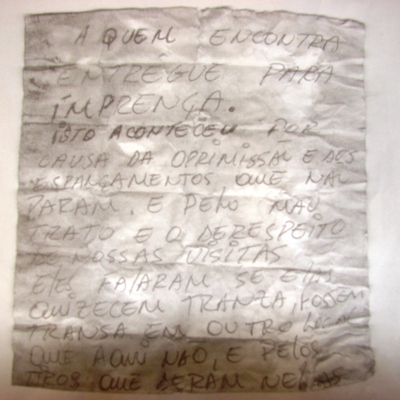 A QUEM ENCONTRA
ENTREGUE PARA
IMPRENÇA.
ISTO ACONTECEU POR
CAUSA DA OPRIMISSAL E DES
ESPANÇAMENTOS QUE NAL
PARAM, E PELO MAU
TRATO E O DERESPEITO
DE NOSSAS VISITAS
ELES FALARAM SE
QUIZECEM TRANZA, FOSSEM
TRANSA EM OUTRO
QUE AQUI NAO, E PELOS
TIROS QUE DERAM